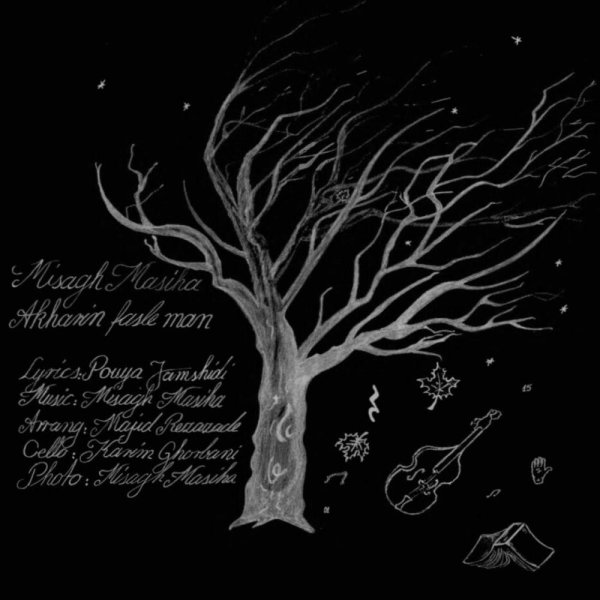 Misagh Masiha
Akharin fasle man
Lyrics: Pouya Jamshidi
Music: Misagh Masiha
Arrang: Majid Rezazade
Cello: Karim Ghorbani
Photo: Misagh Masiha
15